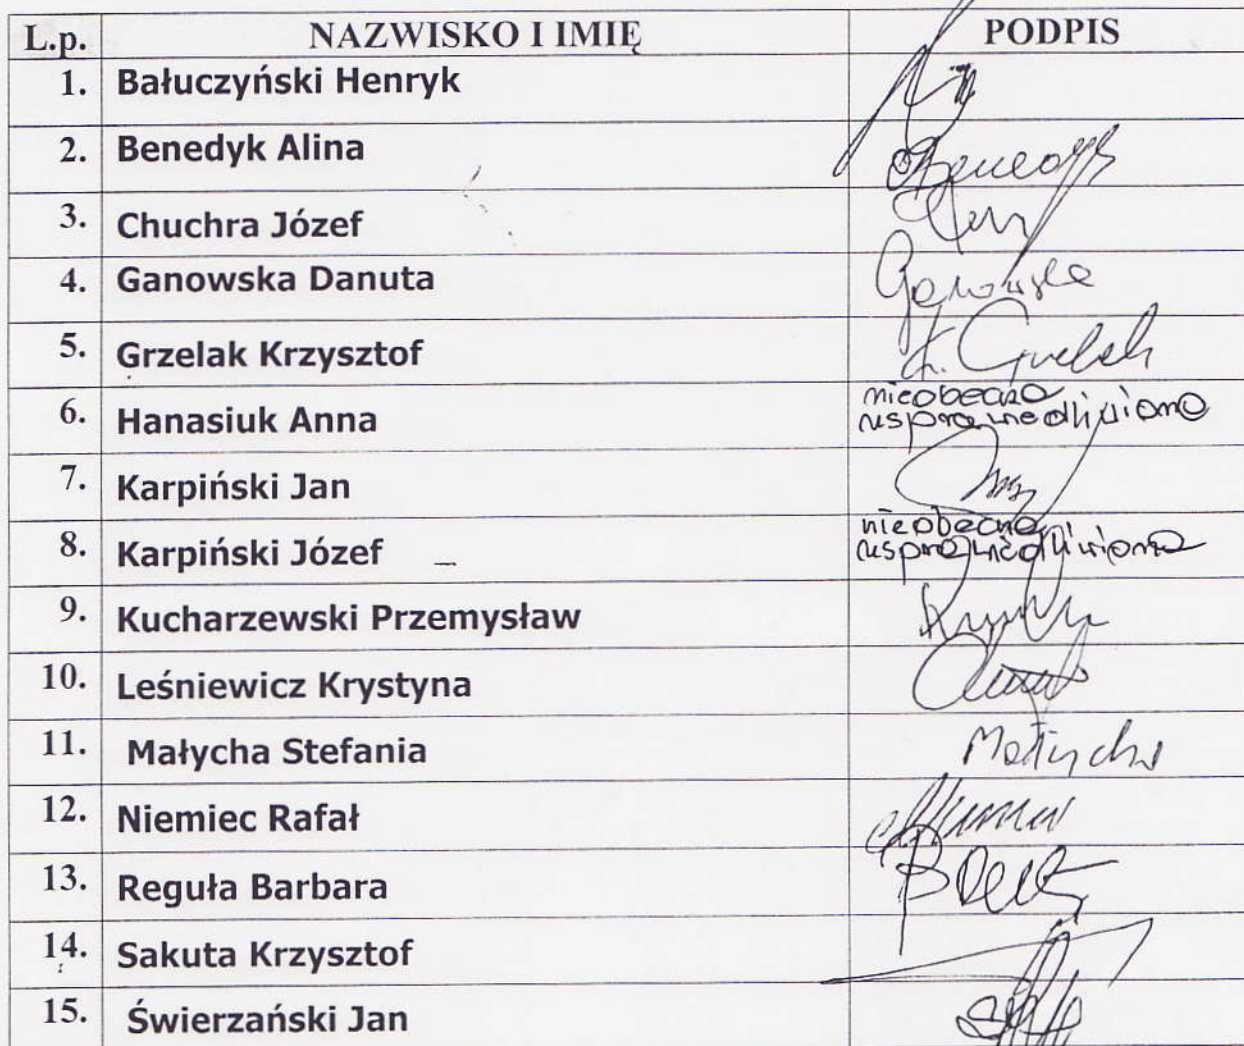 L.p. NAZWISKO I IMIĘ PODPIS
1. Bałuczyński Henryk
2. Benedyk Alina Benedyk
3. Chuchra Józef
4. Ganowska Danuta Ganowska
5. Grzelak Krzysztof K. Grzelak
6. Hanasiuk Anna nieobecna
usprawiedliwiona
7. Karpiński Jan
8. Karpiński Józef nieobecny
usprawiedliwiony
9. Kucharzewski Przemysław
10. Leśniewicz Krystyna
11. Małycha Stefania Małycha
12. Niemiec Rafał
13. Reguła Barbara
14. Sakuta Krzysztof
15. Świerzański Jan